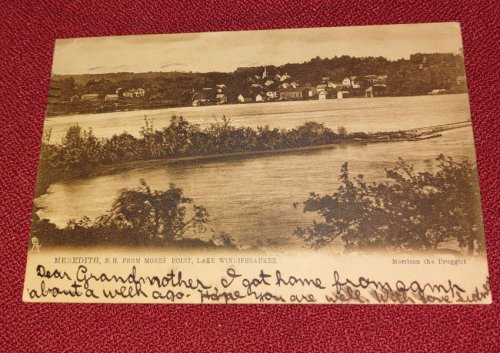 MEREDITH, N.H. FROM MOSES POINT, LAKE WINNIPESAUKEE.
Morrison the Druggist
Dear Grandmother I got home from camp
about a week ago. Hope you are well. Will love